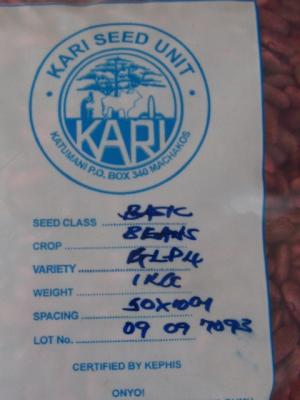 KARI SEED UNIT
KARI
KATUMANI P.O. BOX 340 MACHAKOS
SEED CLASS BASIC
CROP BEANS
VARIETY GLP4
WEIGHT 1KG
SPACING 50X10CM
LOT No. 09 09 7093
CERTIFIED BY KEPHIS
ONYO!